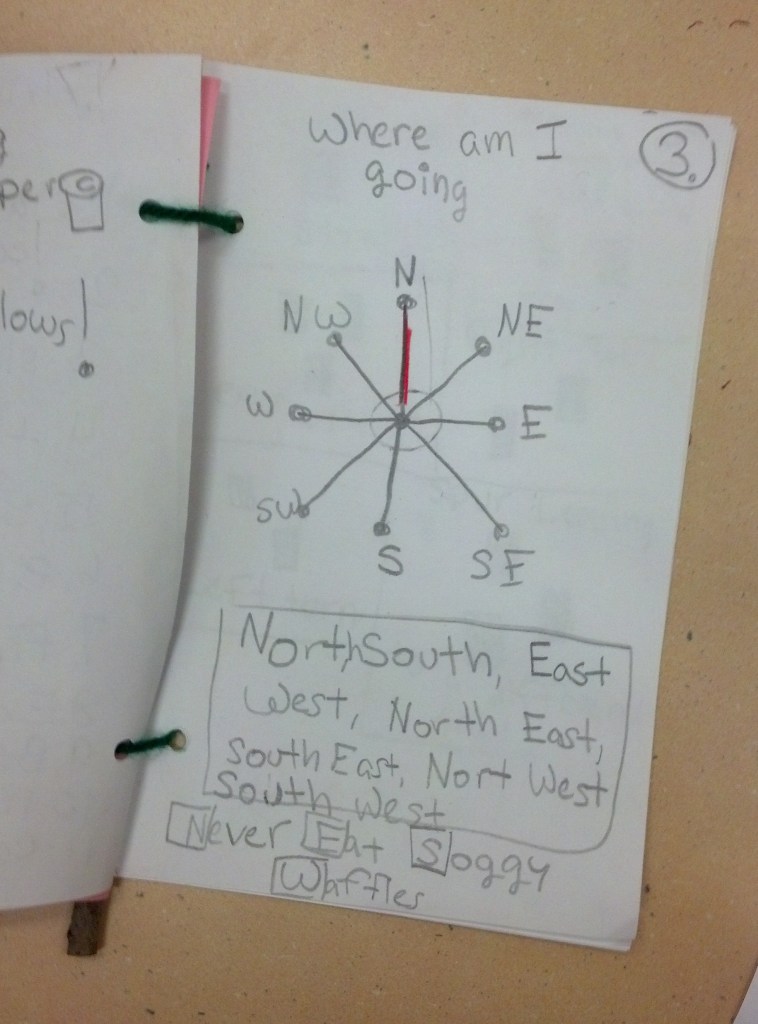 per
lows!
Where am I
going
3.
N
NW
NE
W
E
SW
S
SE
North, South, East
West, North East,
South East, Nort West
South West
Never Eat Sloggy
Waffles